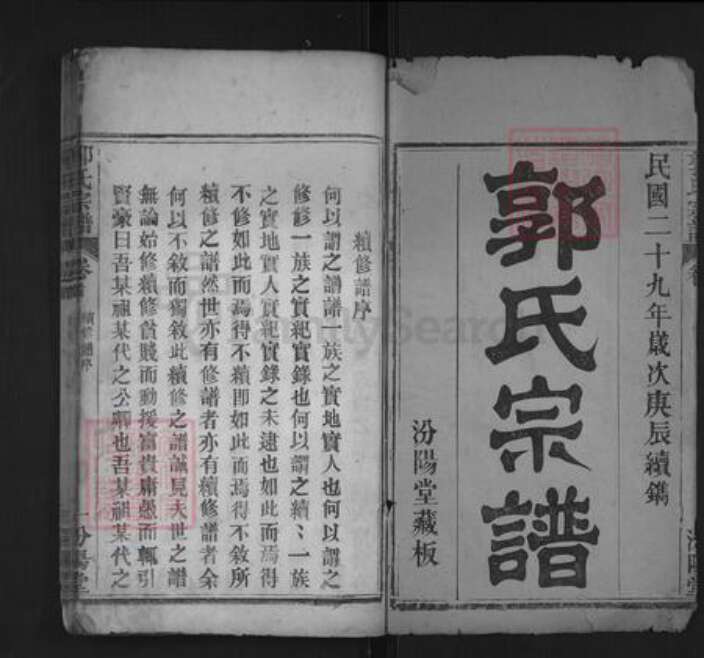 民國二十九年歲次庚辰續鐫
郭氏宗譜
汾陽堂藏板
續修譜序
何以謂之譜譜一族之實地實人也何以謂之
修修一族之實紀實錄也何以謂之續〻一族
之實地實人實紀實錄之未逮也如此而焉得
不修如此而焉得不續即如此而焉得不敘所
續修之譜然世亦有修譜者亦有續修譜者余
何以不敘而獨敘此續修之譜誠見夫世之譜
無論始修續修貧賤而動援富貴庸愚而輒引
賢豪曰吾某祖某代之公卿也吾某祖某代之
郭氏宗譜
續修譜序
一
汾陽堂
FamilySearch